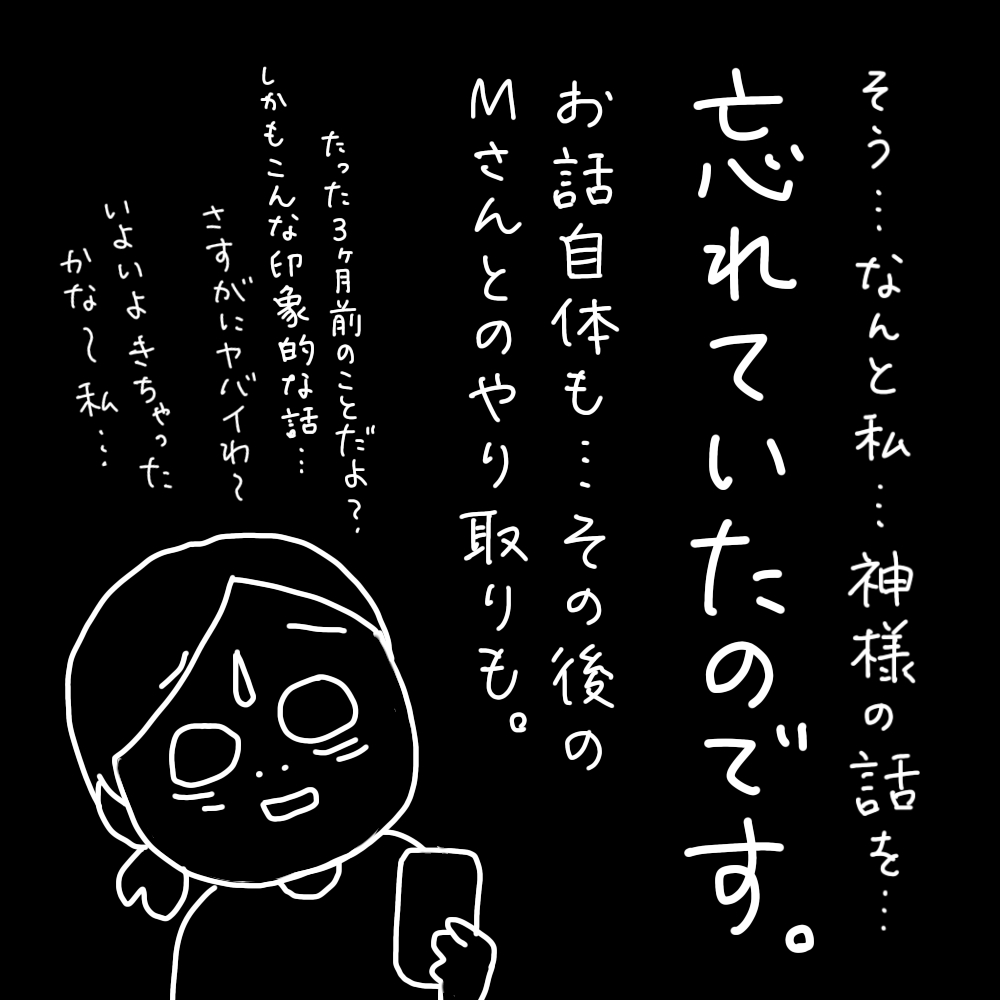 そう…なんと私…神様の話を…
忘れていたのです。
お話自体も…その後の
Mさんとのやり取りも。
たった3ヶ月前のことだよ?
しかもこんな印象的な話…
さすがにヤバイわ〜
いよいよきちゃった
かな〜私…